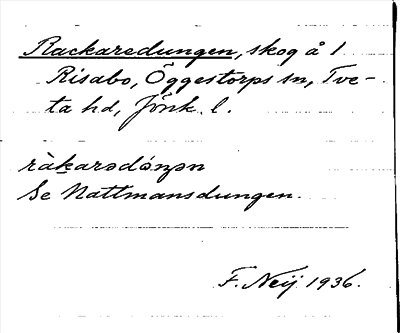 Rackaredungen, skog å 1
Risabo, Öggestorps sn, Tve-
ta hd, Jönk. l.
ràkarədóŋən
Se Nattmansdungen.
F. Neij 1936.